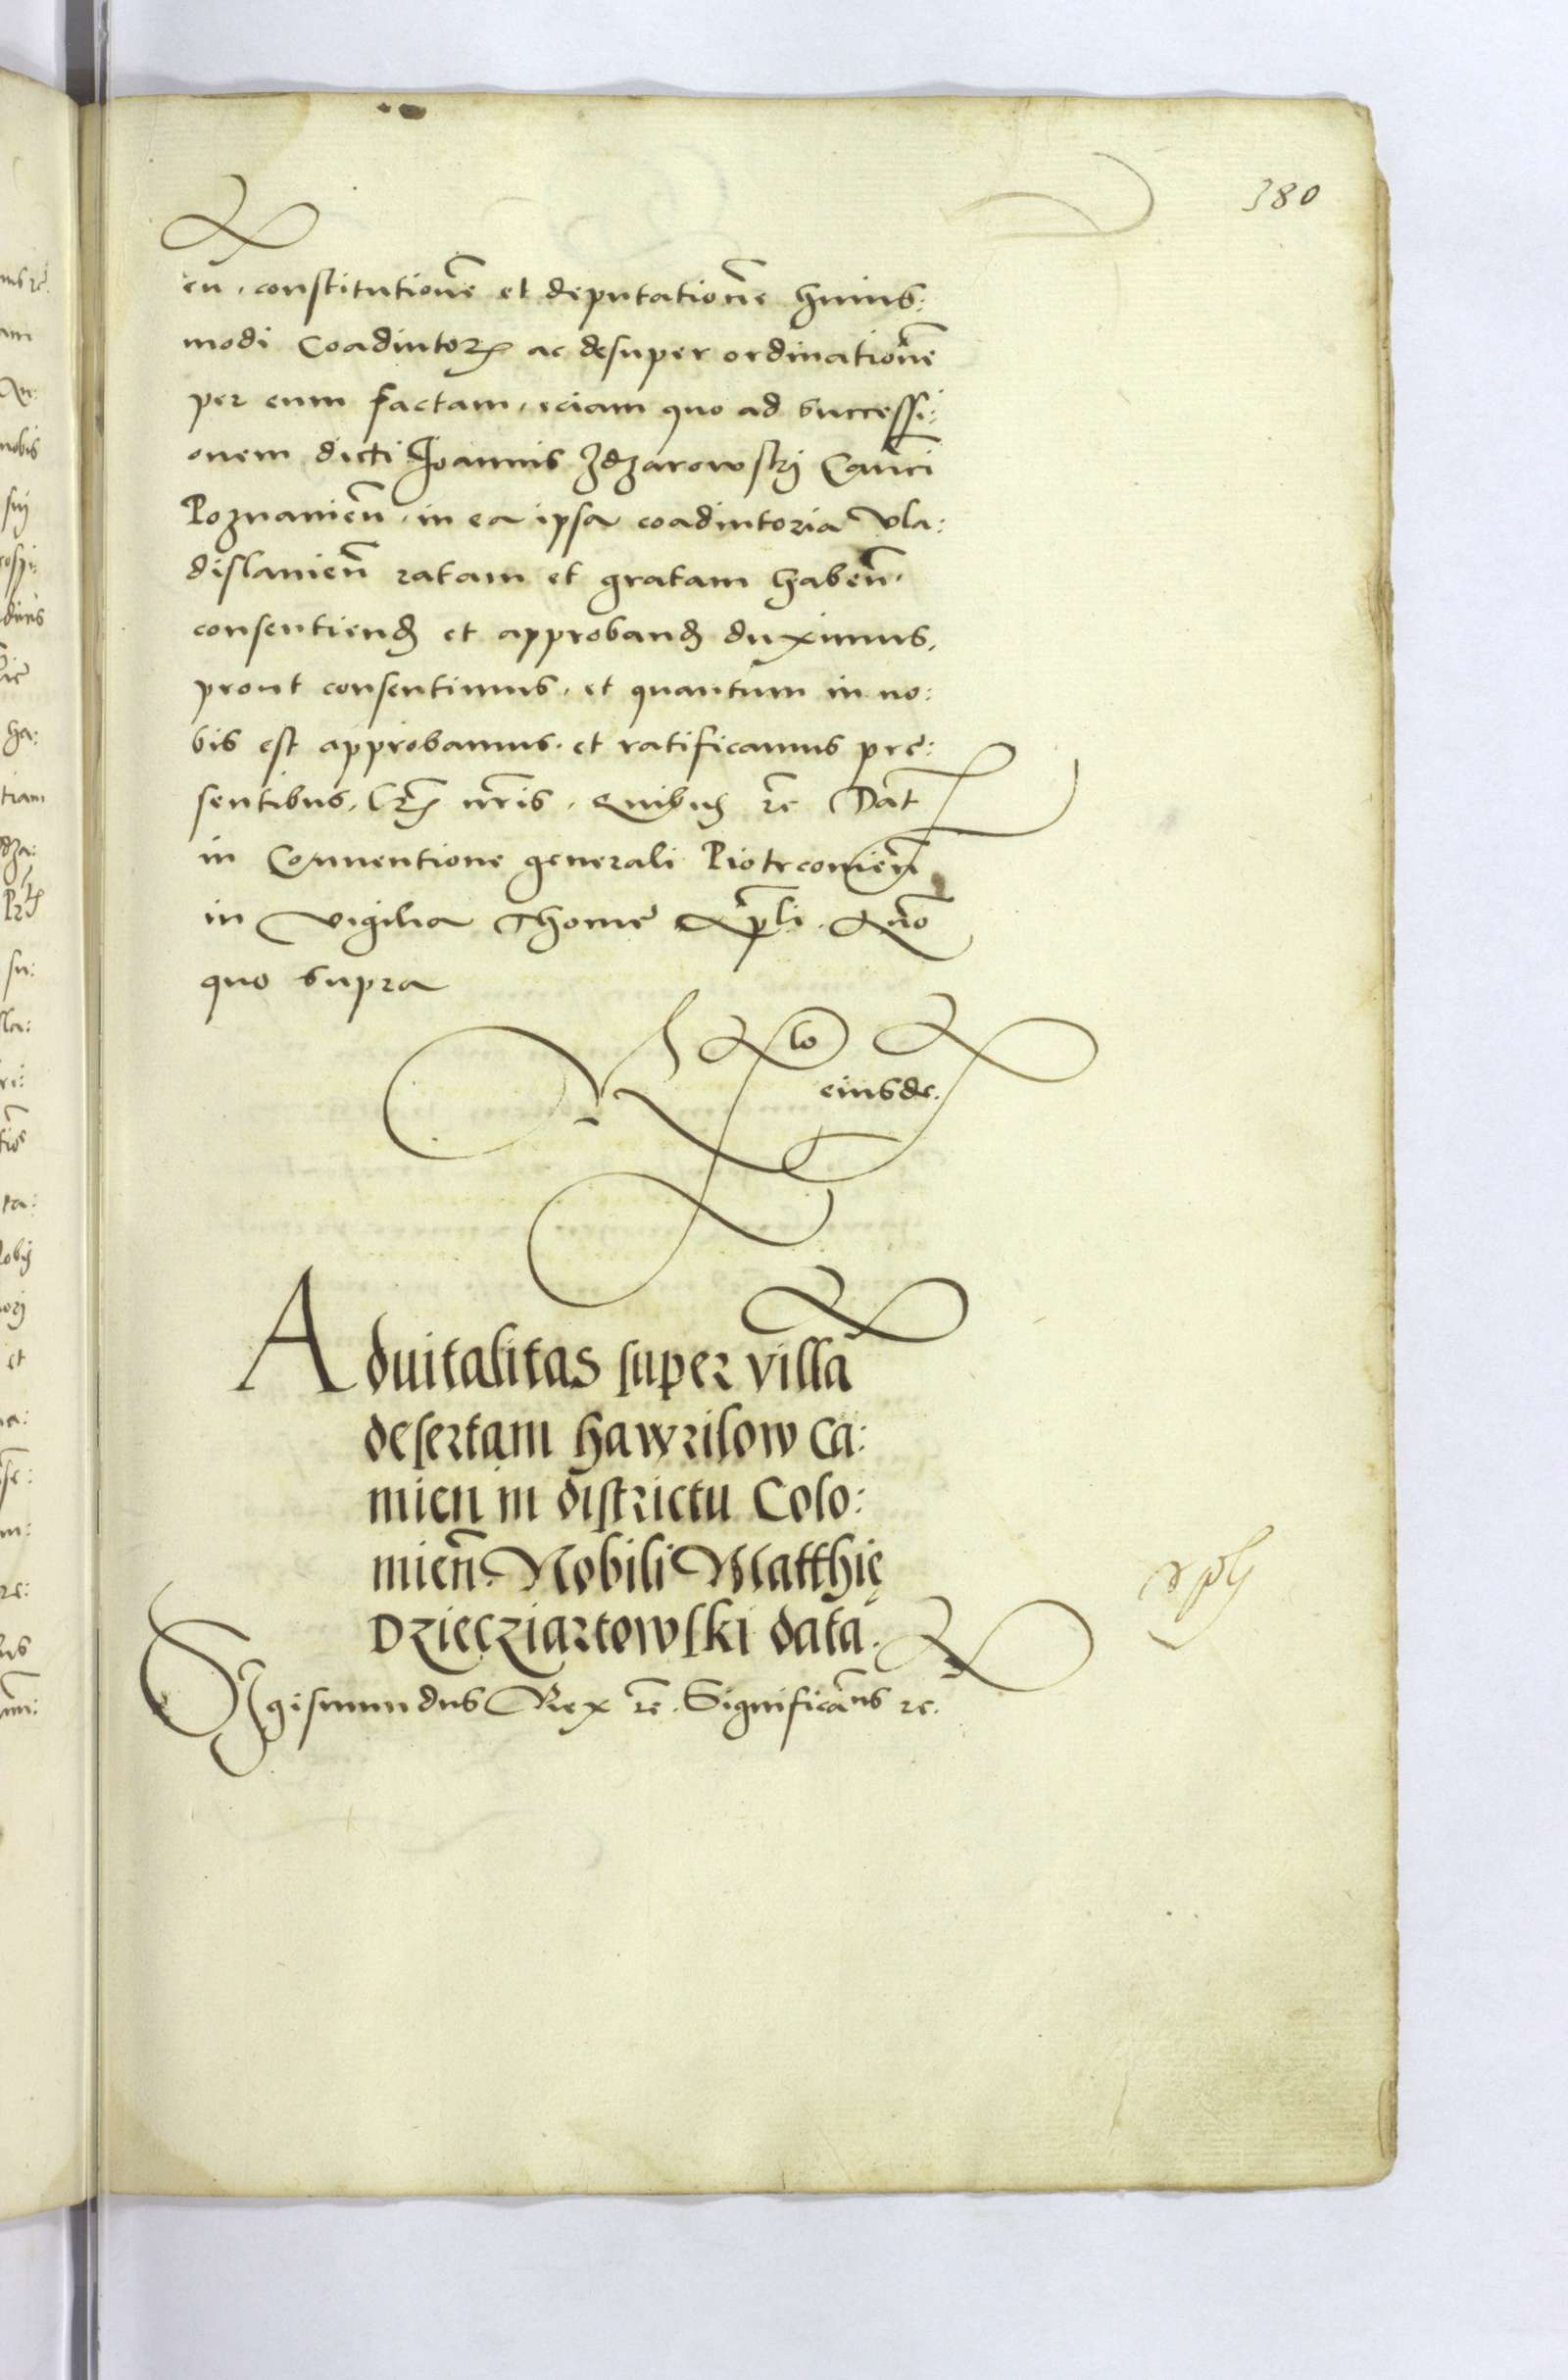 380
cu, constitutionē et deputationē huius:
modi Coadiutoꝝ ac desuper ordinationē
per eum factam, eciam quo ad successi:
onem dicti Joannis Zdzarowskj Canci
Poznanieñ, in ea ipsa coadiutoria Vla:
dislauieñ ratam et gratam habeñ,
consentiend et approband duximus,
prout consentimus, et quantum in no:
bis est approbamus, et ratificamus pre:
sentibus, lrꝝ nr̃is, Quibus rc̃ Dat̃
in Conuentione generali Piotrconieñ
in vigilia Thome Ap̃li. Año
quo supra
Rl̃o
eiusde.
Aduitalitas super villã
desertam Hawrilow Ca:
mien in districtu Colo:
mieñ. Nobili Matthię
Dziecziartowski data.
Sigismundus Rex rc̃. Significam̃us rc.